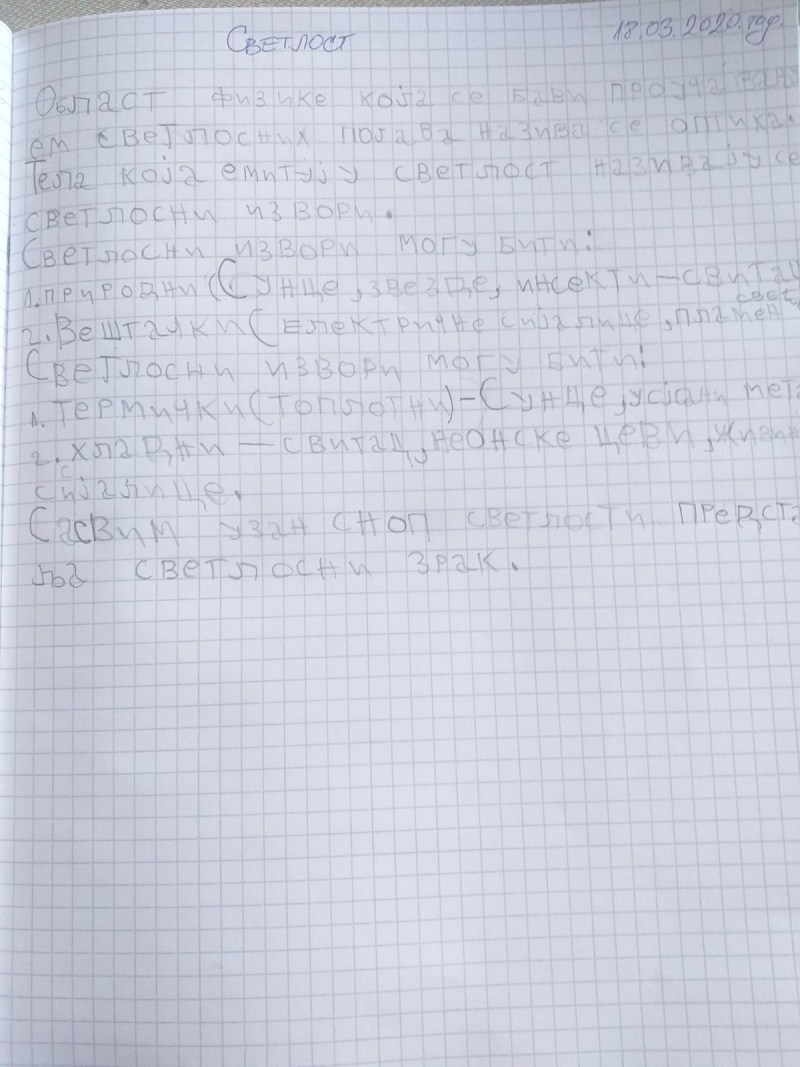 Светлост 18.03.2020.год.
Област физике која се бави проучавањ
ем светлосних појава назива се оптика.
Тела која емитују светлост називају се
светлосни извори.
Светлосни извори могу бити:
1. природни (Сунце, звезде, инсекти - свитац
свет
2. Вештачки (електричне сијалице, пламен
Светлосни извори могу бити:
1. Термички (топлотни) - Сунце, усјани мета
2. хладни - свитац, неонске цеви, живин
сијалице.
Сасвим узан сноп светлости предста
ља светлосни зрак.